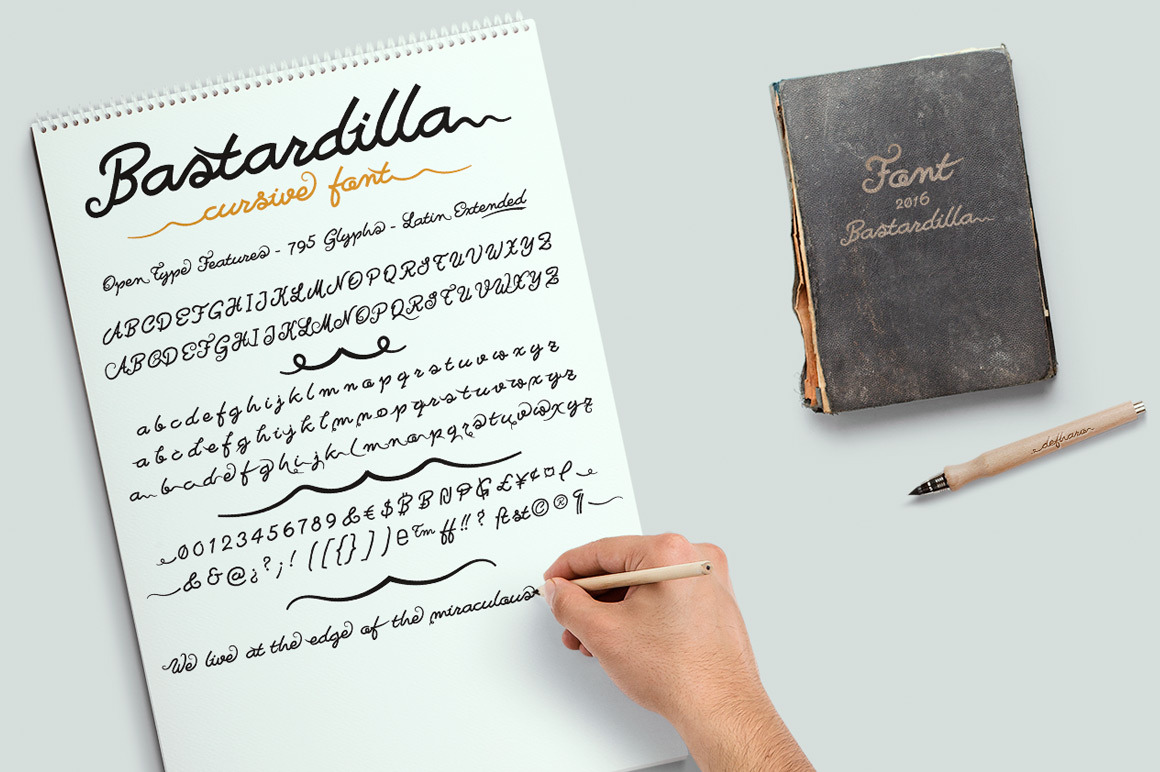 Bastardilla
cursive font
Open Type Features - 795 Glyphs - Latin Extended
ABCDEFGHIJKLMNOPQRSTUVWXYZ
ABCDEFGHIJKLMNOPQRSTUVWXYZ
a b c d e f g h i j k l m n o p q r s t u v w x y z
a b c d e f g h i j k l m n o p q r s t u v w x y z
a b c d e f g h i j k l m n o p q r s t u v w x y z
0 0 1 2 3 4 5 6 7 8 9 & € $ ₿
£ ¥ ¢ ¤
& & @ ¿ ? ¡ ! ( [ { } ] ) e ™ ff !! ? ft st © ® ¶
We live at the edge of the miraculous
Font
2016
Bastardilla
defharo